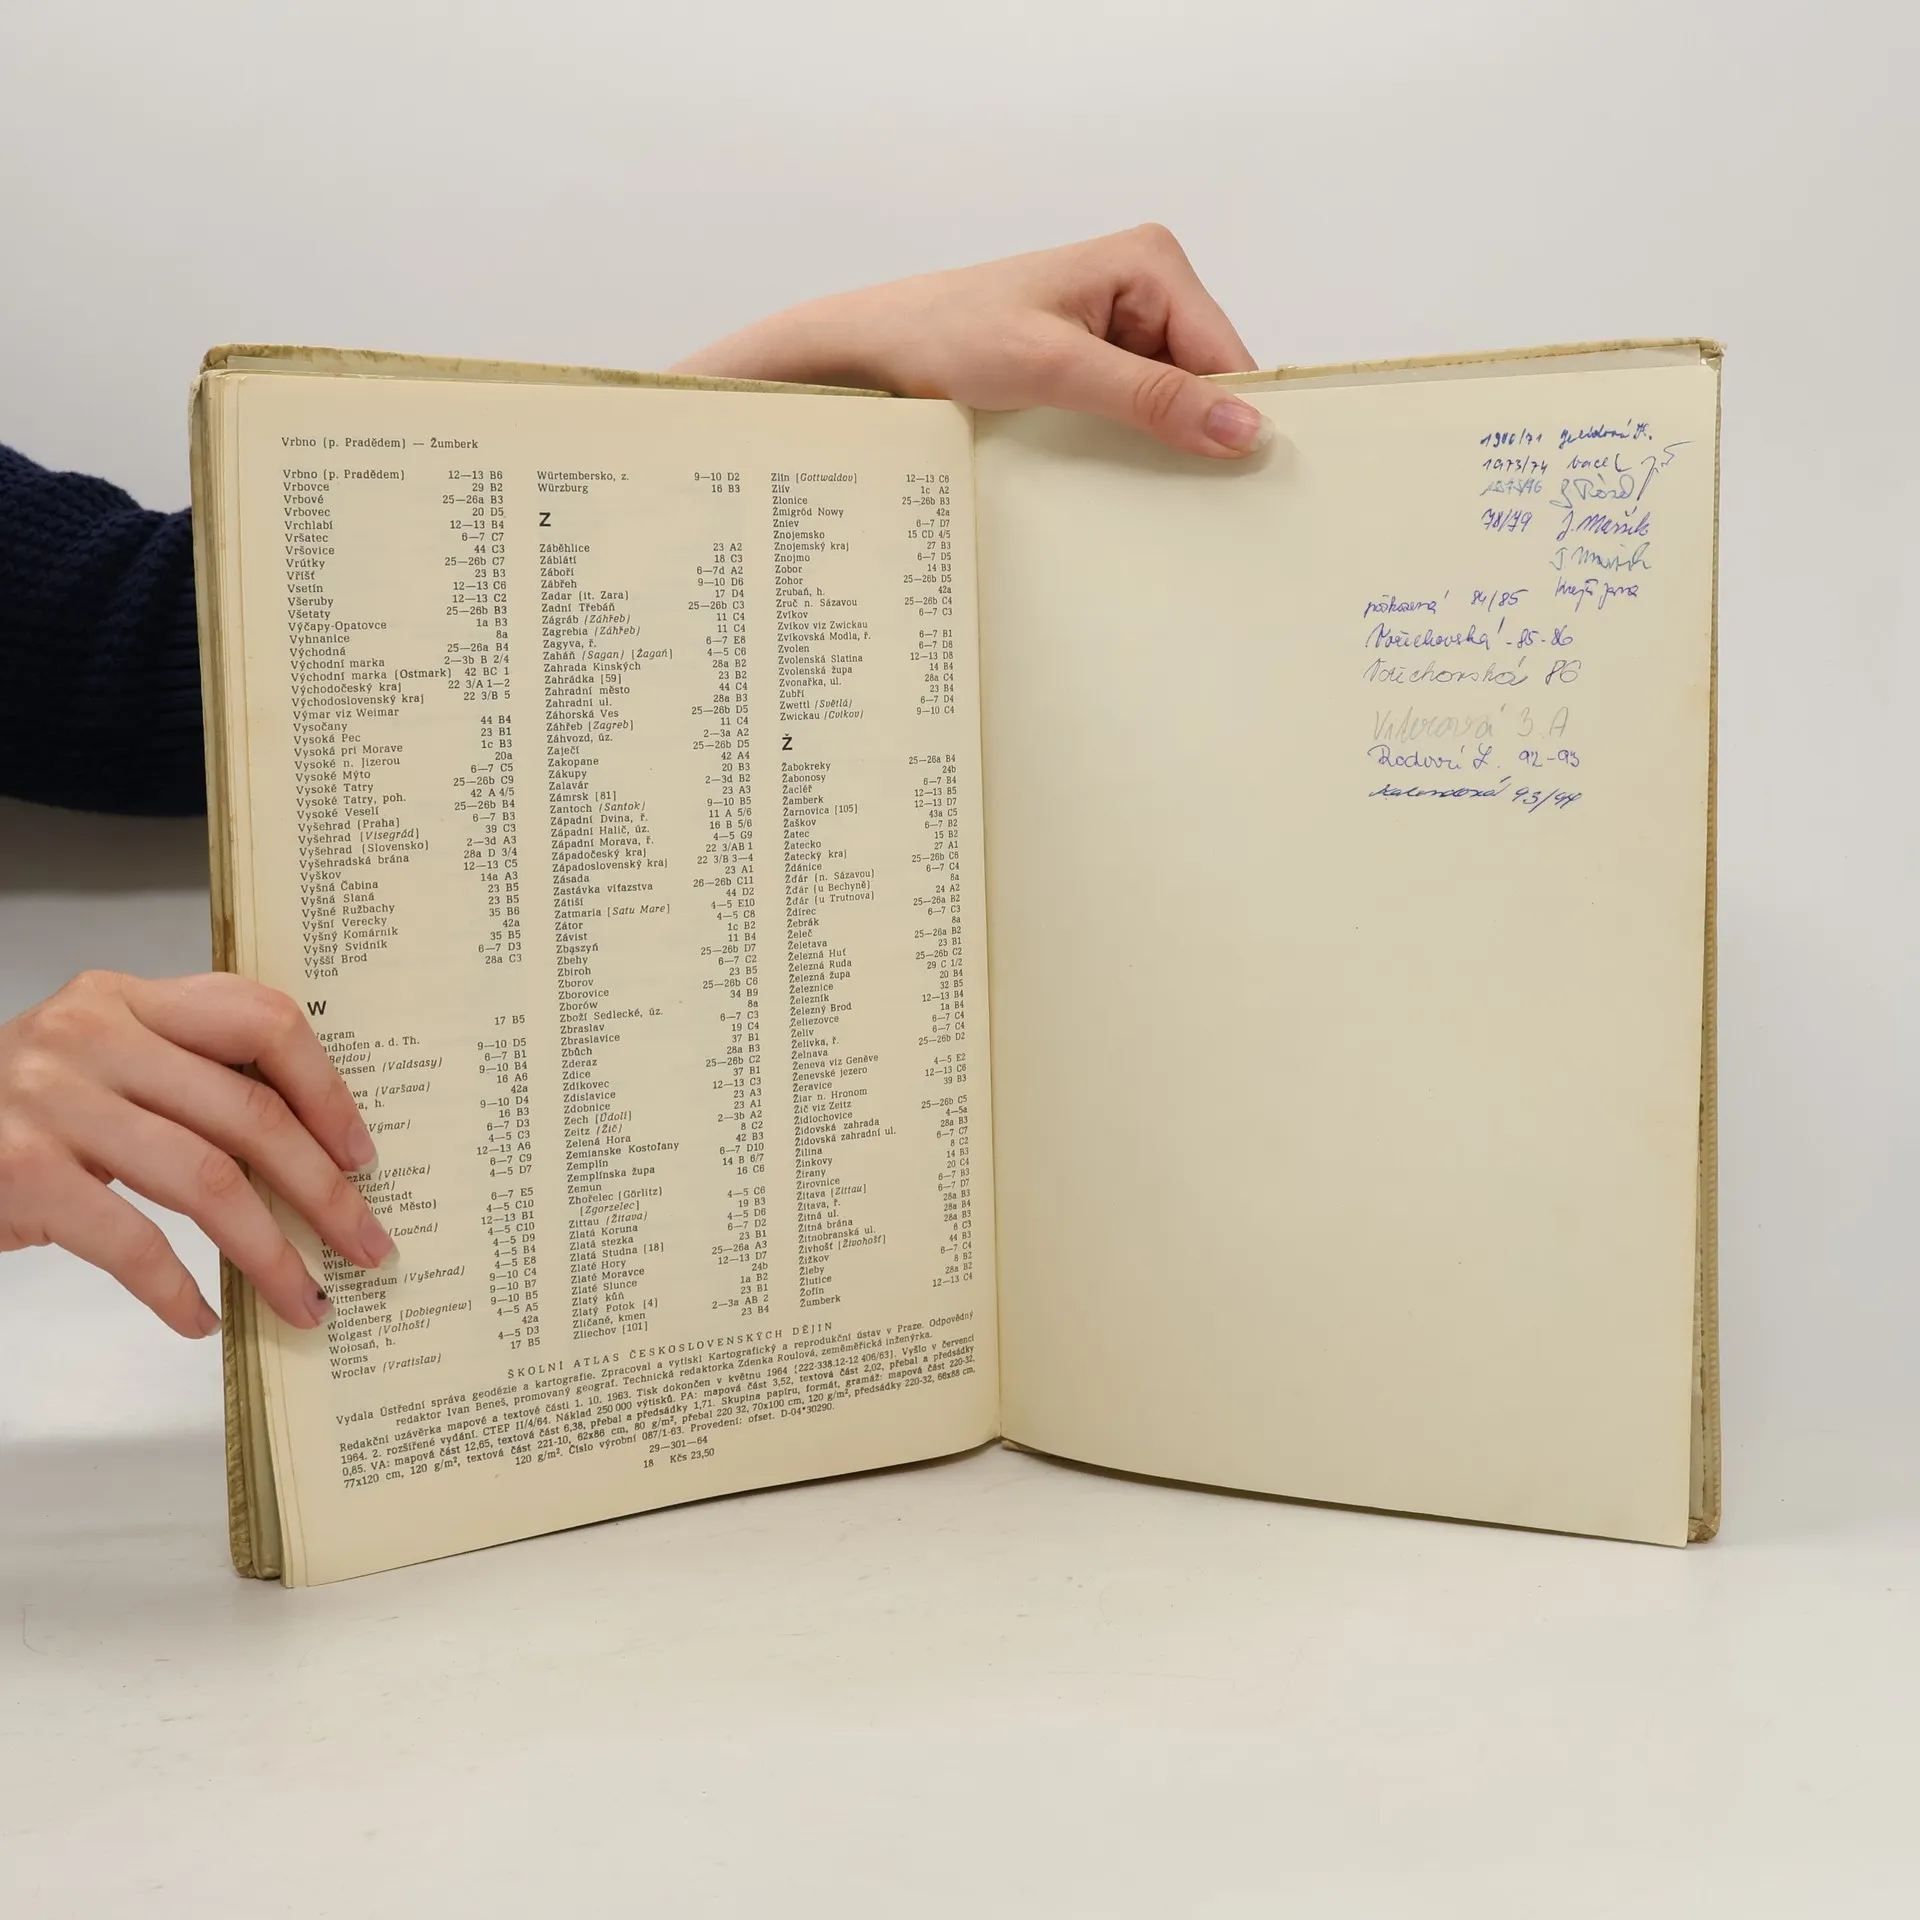 Vrbno (p. Pradědem) — Žumberk
Vrbno (p. Pradědem) 12—13 B6
Vrbovce 29 B2
Vrbové 25—26a B3
Vrbovec 20 D5
Vrchlabí 12—13 B4
Vršatec 6—7 C7
Vršovice 44 C3
Vrútky 25—26b C7
Vříšť 23 B3
Vsetín 12—13 C6
Všeruby 12—13 C2
Všetaty 25—26b B3
Výčapy-Opatovce 1a B3
Vyhnanice 8a
Východná 25—26a B4
Východní marka 2—3b B 2/4
Východní marka (Ostmark) 42 BC 1
Východočeský kraj 22 3/A 1—2
Východoslovenský kraj 22 3/B 5
Výmar viz Weimar
Vysočany 44 B4
Vysoká Pec 23 B1
Vysoká pri Morave 1c B3
Vysoké n. Jizerou 20a
Vysoké Mýto 6—7 C5
Vysoké Tatry 25—26b C9
Vysoké Tatry, poh. 42 A 4/5
Vysoké Veselí 25—26b B4
Vyšehrad (Praha) 6—7 B3
Vyšehrad [Visegrád] 39 C3
Vyšehrad (Slovensko) 2—3d A3
Vyšehradská brána 28a D 3/4
Vyškov 12—13 C5
Vyšná Čabina 14a A3
Vyšná Slaná 23 B5
Vyšné Ružbachy 23 B5
Vyšní Verecky 35 B6
Vyšný Komárnik 42a
Vyšný Svidník 35 B5
Vyšší Brod 6—7 D3
Výtoň 28a C3
W
agram 17 B5
aidhofen a. d. Th. 9—10 D5
Bejdov) 6—7 B1
lsassen (Valdsasy) 9—10 B4
16 A6
wa (Varšava) 42a
a, h. 9—10 D4
16 B3
(Výmar) 6—7 D3
4—5 C3
12—13 A6
6—7 C9
czka (Vělička) 4—5 D7
Vídeň)
Neustadt 6—7 E5
lové Město) 4—5 C10
12—13 B1
(Loučná) 4—5 C10
4—5 D9
4—5 B4
Wismar 4—5 E8
Wissegradum (Vyšehrad) 9—10 C4
Wittenberg 9—10 B7
locławek 9—10 B5
Woldenberg [Dobiegniew] 4—5 A5
Wolgast (Volhošť) 42a
Wołosań, h. 4—5 D3
Worms 17 B5
Wrocław (Vratislav)
Würtembersko, z. 9—10 D2
Würzburg 16 B3
Z
Záběhlice 23 A2
Záblatí 18 C3
Záboří 6—7d A2
Zábřeh 9—10 D6
Zadar (it. Zara) 17 D4
Zadní Třebáň 25—26b C3
Zágráb (Záhřeb) 11 C4
Zagrebia (Záhřeb) 11 C4
Zagyva, ř. 6—7 E8
Zaháň (Sagan) [Żagań] 4—5 C6
Zahrada Kinských 28a B2
Zahrádka [59] 23 B2
Zahradní město 44 C4
Zahradní ul. 28a B3
Záhorská Ves 25—26b D5
Záhřeb [Zagreb] 11 C4
Záhvozd, úz. 2—3a A2
Zaječí 25—26b D5
Zakopane 42 A4
Zákupy 20 B3
Zalavár 2—3d B2
Zámrsk [81] 23 A3
Zantoch (Santok) 9—10 B5
Západní Dvina, ř. 11 A 5/6
Západní Halič, úz. 16 B 5/6
Západní Morava, ř. 4—5 G9
Západočeský kraj 22 3/AB 1
Západoslovenský kraj 22 3/B 3—4
Zásada 23 A1
Zastávka víťazstva 26—26b C11
Zátiší 44 D2
Zatmaria [Satu Mare] 4—5 E10
Zátor 4—5 C8
Závist 1c B2
Zbąszyń 11 B4
Zbehy 25—26b D7
Zbiroh 6—7 C2
Zborov 23 B5
Zborovice 25—26b C6
Zborów 34 B9
Zboží Sedlecké, úz. 8a
Zbraslav 6—7 C3
Zbraslavice 19 C4
Zbůch 37 B1
Zderaz 28a B3
Zdice 25—26b C2
Zdíkovec 37 B1
Zdislavice 12—13 C3
Zdobnice 23 A3
Zech [Údolí] 23 A1
Zeitz (Žič) 2—3b A2
Zelená Hora 8 C2
Zemianske Kostoľany 42 B3
Zemplín 6—7 D10
Zemplínska župa 14 B 6/7
Zemun 16 C6
Zhořelec (Görlitz)
[Zgorzelec] 4—5 C6
Zittau (Žitava) 19 B3
Zlatá Koruna 4—5 D6
Zlatá stezka 6—7 D2
Zlatá Studna [18] 23 B1
Zlaté Hory 25—26a A3
Zlaté Moravce 12—13 D7
Zlaté Slunce 24b
Zlatý kůň 1a B2
Zlatý Potok [4] 23 B1
Zličané, kmen 2—3a AB 2
Zliechov [101] 23 B4
Zlín [Gottwaldov] 12—13 C6
Zlív 1c A2
Zlonice 25—26b B3
Żmigród Nowy 42a
Zniev 6—7 D7
Znojemsko 15 CD 4/5
Znojemský kraj 27 B3
Znojmo 6—7 D5
Zobor 14 B3
Zohor 25—26b D5
Zrubaň, h. 42a
Zruč n. Sázavou 25—26b C4
Zvíkov 6—7 C3
Zvíkov viz Zwickau
Zvíkovská Modla, ř. 6—7 B1
Zvolen 6—7 D8
Zvolenská Slatina 12—13 D8
Zvolenská župa 14 B4
Zvonařka, ul. 28a C4
Zubří 23 B4
Zwettl (Světlá) 6—7 D4
Zwickau (Cvikov) 9—10 C4
Ž
Žabokreky 25—26a B4
Žabonosy 24b
Žacléř 6—7 B4
Žamberk 12—13 B5
Žarnovica [105] 12—13 D7
Žaškov 43a C5
Žatec 6—7 B2
Žatecko 15 B2
Žatecký kraj 27 A1
Ždánice 25—26b C6
Žďár (n. Sázavou) 6—7 C4
Žďár (u Bechyně) 8a
Žďár (u Trutnova) 24 A2
Ždírec 25—26a B2
Žebrák 6—7 C3
Želeč 8a
Želetava 25—26a B2
Železná Huť 23 B1
Železná Ruda 25—26b C2
Železná župa 29 C 1/2
Železnice 20 B4
Železník 32 B5
Železný Brod 12—13 B4
Želiezovce 1a B4
Želiv 6—7 C4
Želivka, ř. 6—7 C4
Želnava 25—26b D2
Ženeva viz Genève
Ženevské jezero 4—5 E2
Žeravice 12—13 C6
Žiar n. Hronom 39 B3
Žič viz Zeitz
Židlochovice 25—26b C5
Židovská zahrada 4—5a
Židovská zahradní ul. 28a B3
Žilina 6—7 C7
Žinkovy 8 C2
Žirany 14 B3
Žirovnice 20 C4
Žitava [Zittau] 6—7 B3
Žitava, ř. 6—7 D7
Žitná ul. 28a B3
Žitná brána 28a B4
Žitnobranská ul. 28a B3
Živhošť [Živohošť] 6 C3
Žižkov 44 B3
Žleby 6—7 C4
Žlutice 8 B2
Žofín 28a B2
Žumberk 12—13 C4
ŠKOLNÍ ATLAS ČESKOSLOVENSKÝCH DĚJIN
Vydala Ústřední správa geodézie a kartografie. Zpracoval a vytiskl Kartografický a reprodukční ústav v Praze. Odpovědný
redaktor Ivan Beneš, promovaný geograf. Technická redaktorka Zdenka Roulová, zeměměřická inženýrka.
Redakční uzávěrka mapové a textové části 1. 10. 1963. Tisk dokončen v květnu 1964 [222-338.12-12 406/63]. Vyšlo v červenci
1964. 2. rozšířené vydání. CTEP II/4/64. Náklad 250 000 výtisků. PA: mapová část 3,52, textová část 2,02, přebal a předsádky
0,65. VA: mapová část 12,65, textová část 6,38, přebal a předsádky 1,71. Skupina papíru, formát, gramáž: mapová část 220-32,
77x120 cm, 120 g/m², textová část 221-10, 62x86 cm, 80 g/m², přebal 220 32, 70x100 cm, 120 g/m², předsádky 220-32, 66x88 cm,
120 g/m². Číslo výrobní 087/1-63. Provedení: ofset. D-04*30290.
29—301—64
18 Kčs 23,50
1973/74
78/79 J. Maršík
84/85
Vořichovská 85-86
Vořichovská 86
3. A
92-93
93/94